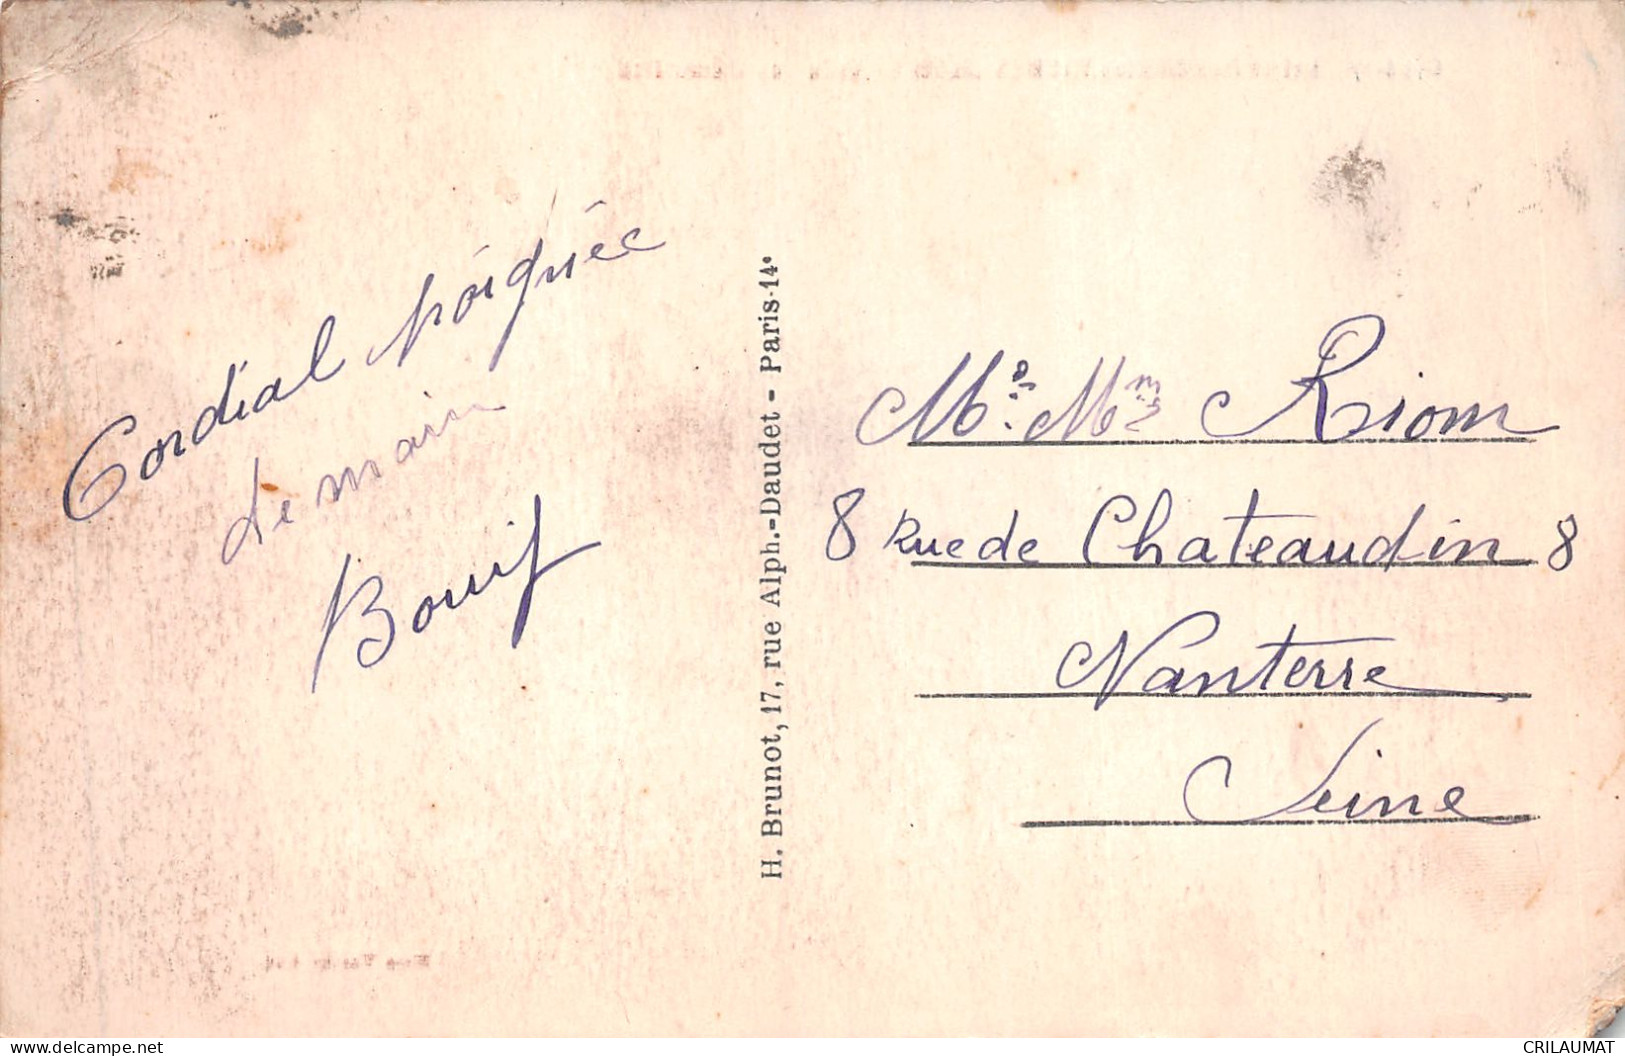 Cordial poignée
de main
Bouif
H. Brunot, 17, rue Alph.-Daudet - Paris-14e
Mr. Mme Riom
8 Rue de Chateaudin 8
Nanterre
Seine
CRILAUMAT